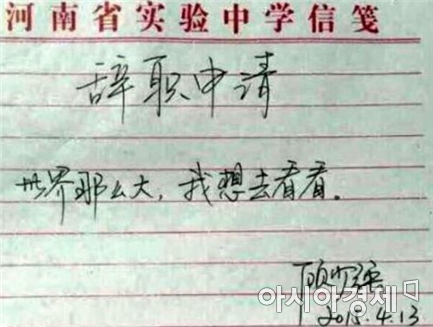 河南省实验中学信笺
辞职申请
世界那么大，我想去看看。
顾少强
아시아경제
2015.4.13